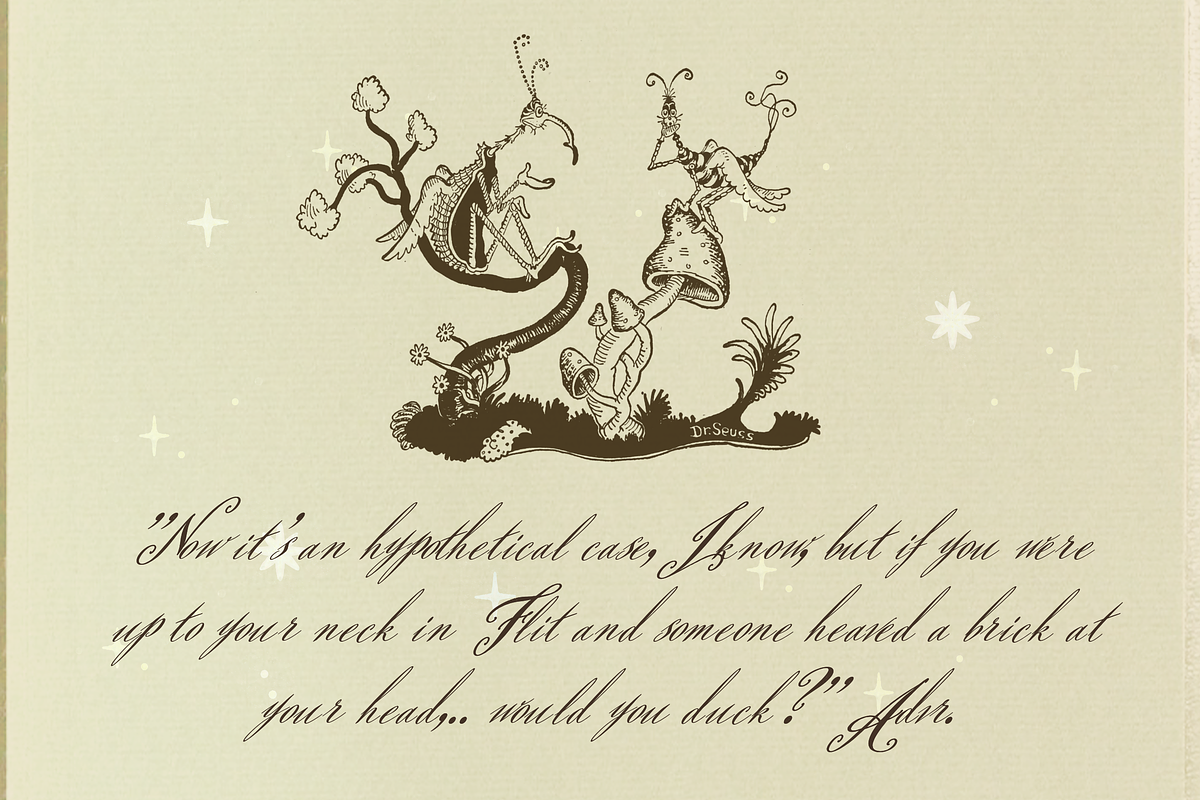 Dr. Seuss
"Now it's an hypothetical case, I know, but if you were
up to your neck in Flit and someone heaved a brick at
your head,.. would you duck?" Adv.